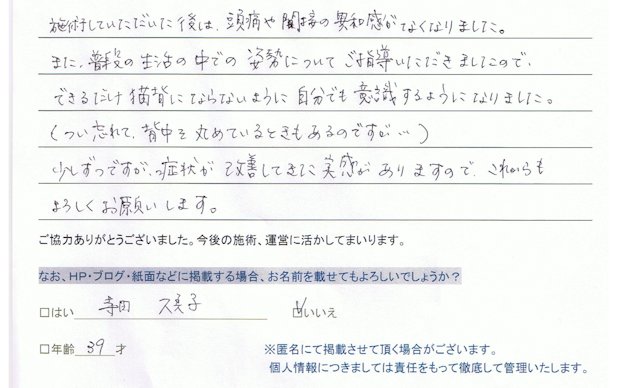 施術していただいた後は、頭痛や関接の異和感がなくなりました。
また、普段の生活の中での姿勢についてご指導いただきましたので、
できるだけ猫背にならないように自分でも意識するようになりました。
(つい忘れて、背中を丸めているときもあるのですが…)
少しずつですが、症状が改善してきた実感がありますので、これからも
よろしくお願いします。
ご協力ありがとうございました。今後の施術、運営に活かしてまいります。
なお、HP・ブログ・紙面などに掲載する場合、お名前を載せてもよろしいでしょうか?
□はい 寺田 久美子 ☑いいえ
□年齢 39 才 ※匿名にて掲載させて頂く場合がございます。
個人情報につきましては責任をもって徹底して管理いたします。